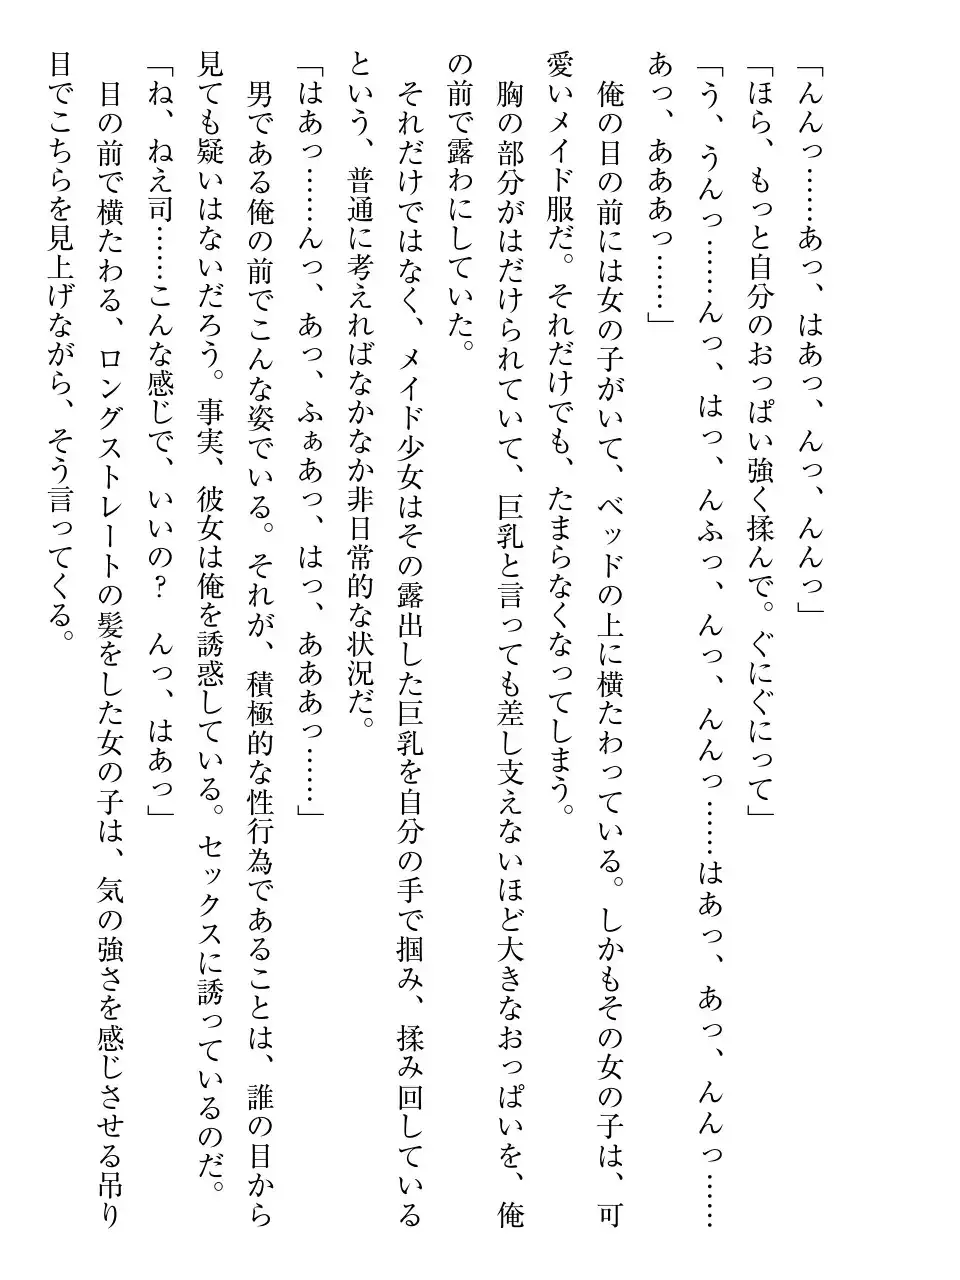 「んんっ……あっ、はあっ、んっ、んんっ」
「ほら、もっと自分のおっぱい強く揉んで。ぐにぐにって」
「う、うんっ……んっ、はっ、んふっ、んっ、んんっ……はあっ、あっ、んんっ……
あっ、あああっ……」
　俺の目の前には女の子がいて、ベッドの上に横たわっている。しかもその女の子は、可
愛いメイド服だ。それだけでも、たまらなくなってしまう。
　胸の部分がはだけられていて、巨乳と言っても差し支えないほど大きなおっぱいを、俺
の前で露わにしていた。
　それだけではなく、メイド少女はその露出した巨乳を自分の手で掴み、揉み回している
という、普通に考えればなかなか非日常的な状況だ。
「はあっ……んっ、あっ、ふぁあっ、はっ、あああっ……」
　男である俺の前でこんな姿でいる。それが、積極的な性行為であることは、誰の目から
見ても疑いはないだろう。事実、彼女は俺を誘惑している。セックスに誘っているのだ。
「ね、ねえ司……こんな感じで、いいの？　んっ、はあっ」
　目の前で横たわる、ロングストレートの髪をした女の子は、気の強さを感じさせる吊り
目でこちらを見上げながら、そう言ってくる。